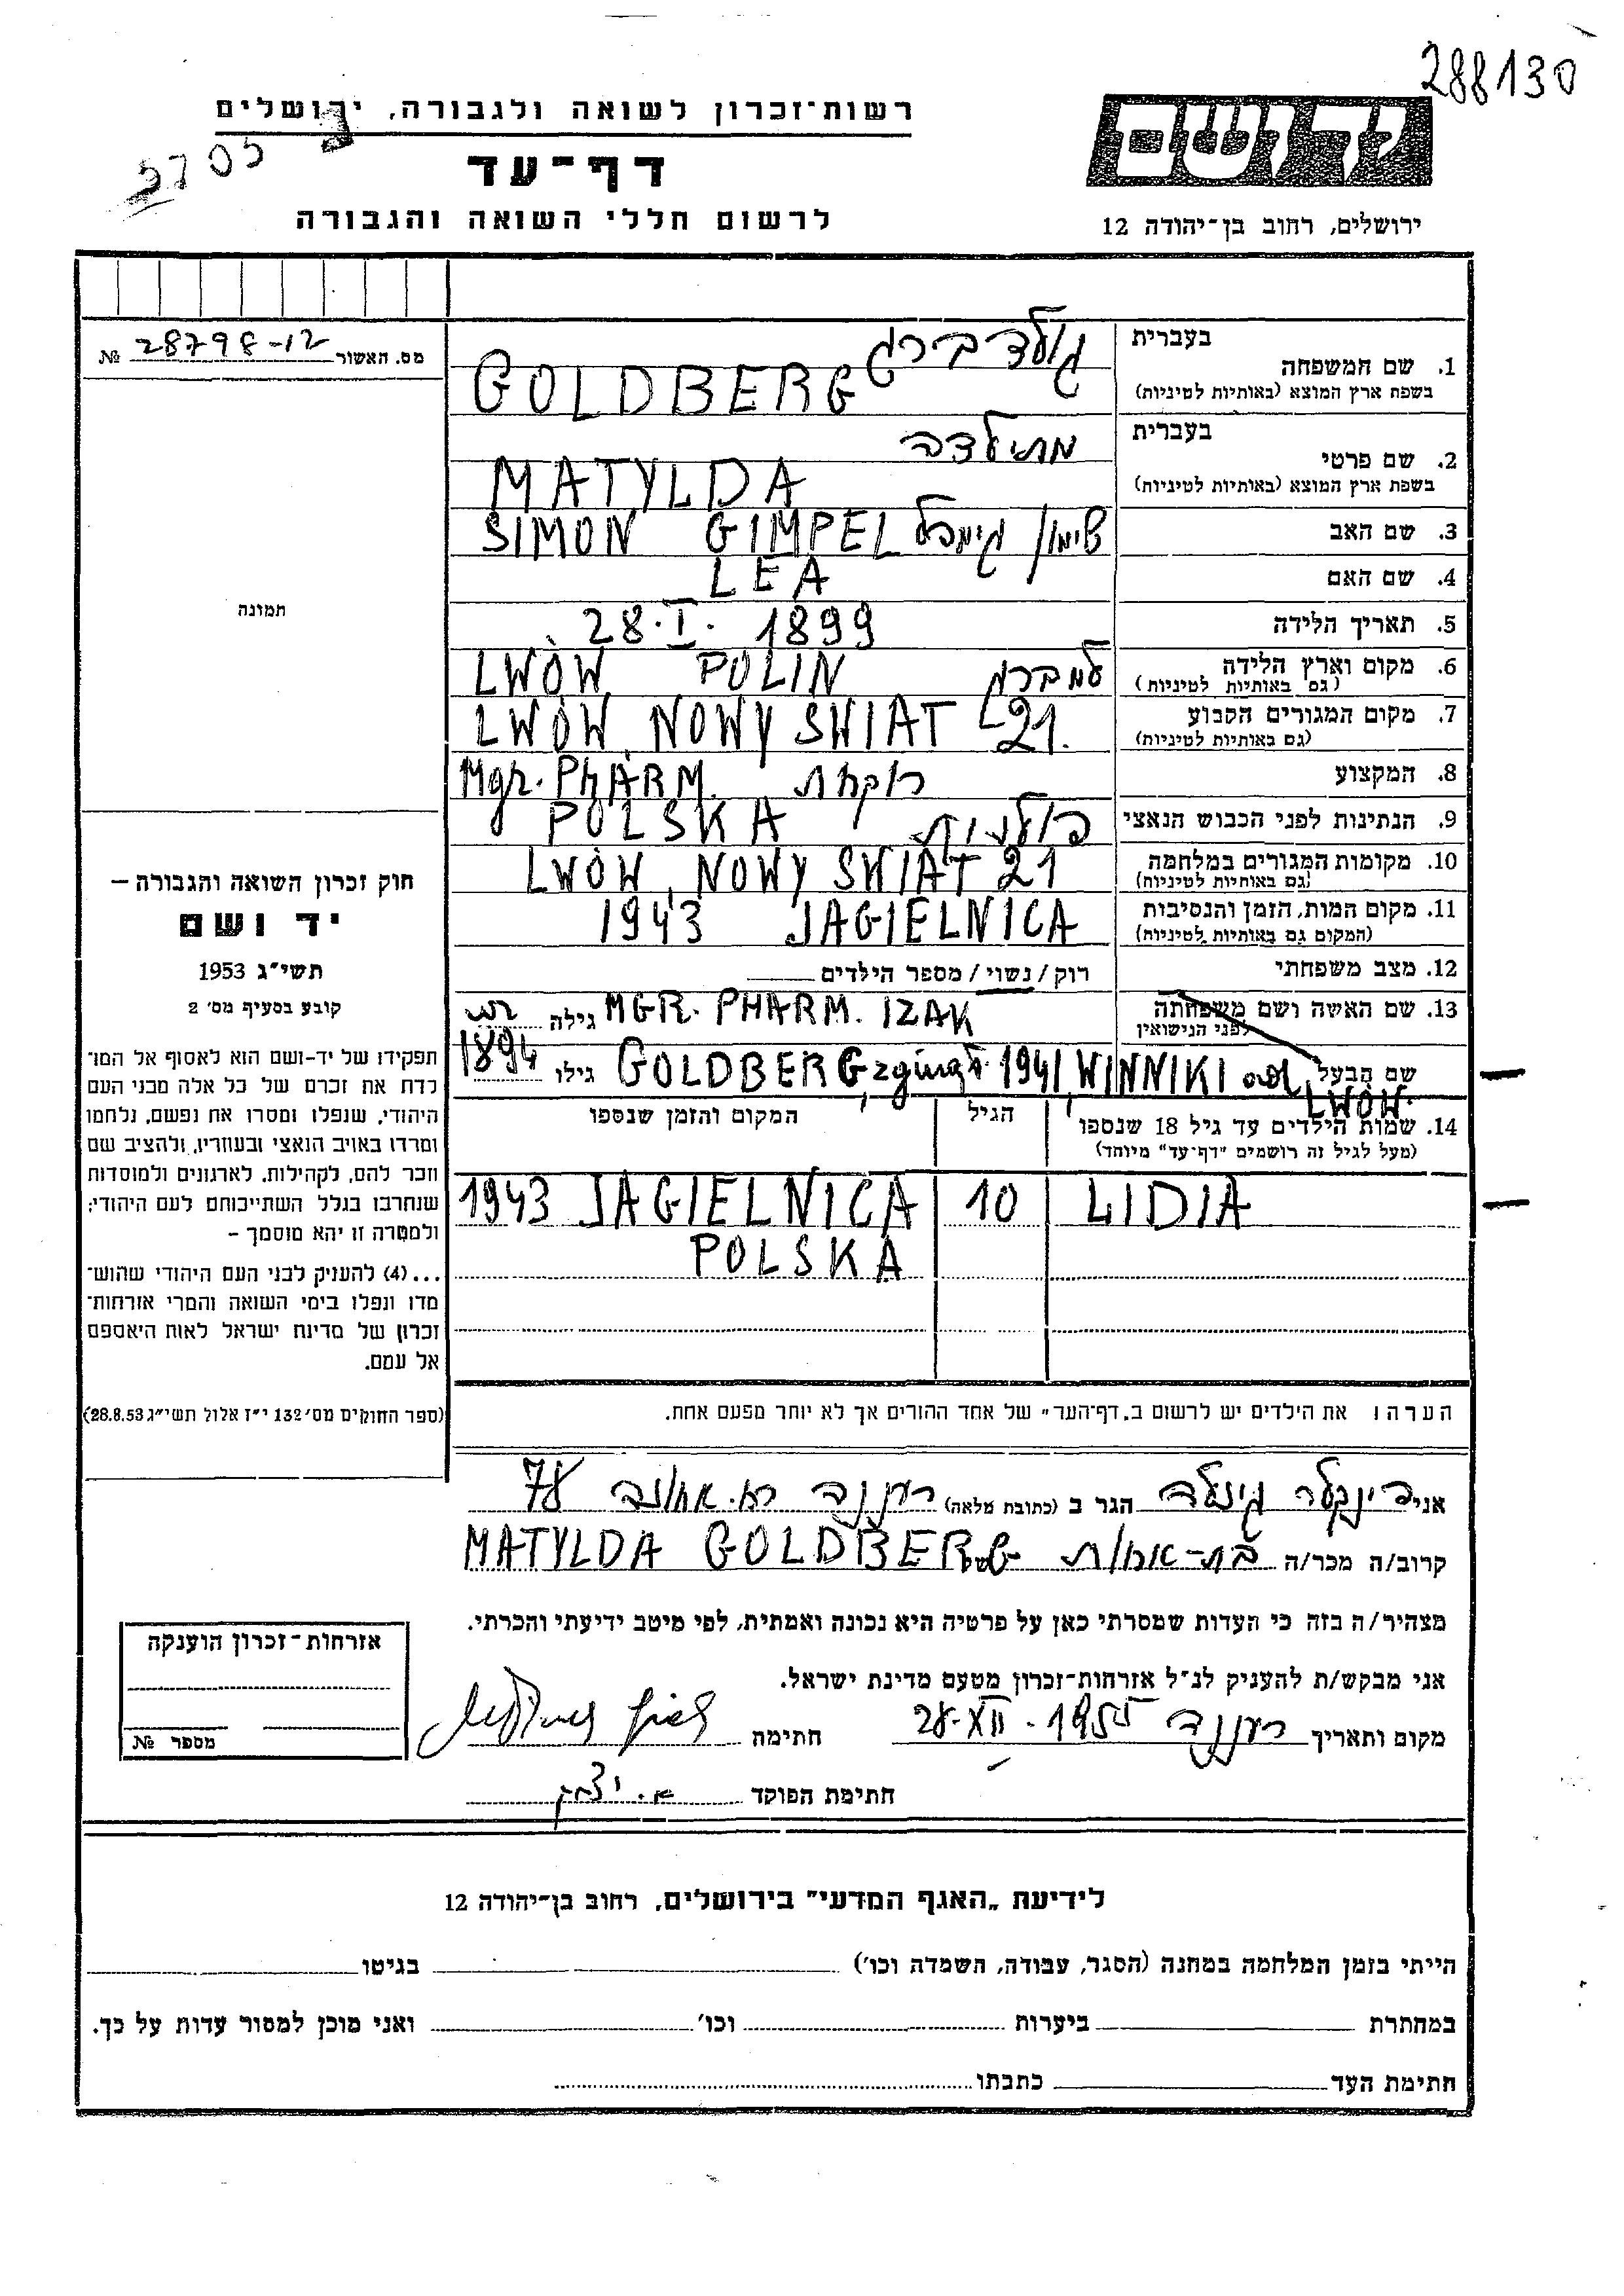 288130
רשות־זכרון לשואה ולגבורה, ירושלים
5705
דף־עד
לרשום חללי השואה והגבורה
יד ושם
ירושלים, רחוב בן־יהודה 12
מס. האשור 28798-12 №
תמונה
חוק זכרון השואה והגבורה –
יד ושם
תשי״ג 1953
קובע בסעיף מס׳ 2
תפקידו של יד-ושם הוא לאסוף אל המו־
לדת את זכרם של כל אלה מבני העם
היהודי, שנפלו ומסרו את נפשם, נלחמו
ומרדו באויב הנאצי ובעוזריו, ולהציב שם
וזכר להם, לקהילות, לארגונים ולמוסדות
שנחרבו בגלל השתייכותם לעם היהודי;
ולמטרה זו יהא מוסמך –
...(4) להעניק לבני העם היהודי שהוש־
מדו ונפלו בימי השואה והמרי אזרחות־
זכרון של מדינת ישראל לאות היאספם
אל עמם.
(ספר החוקים מס׳ 132 י״ז אלול תשי״ג 28.8.53)
בעברית גולדברג
1. שם המשפחה
(בשפת ארץ המוצא (באותיות לטיניות GOLDBERG
בעברית מתילדה
2. שם פרטי
(בשפת ארץ המוצא (באותיות לטיניות MATYLDA
3. שם האב שימון גימפל SIMON GIMPEL
4. שם האם LEA
5. תאריך הלידה 28. I. 1899
6. מקום וארץ הלידה למברג LWÓW POLIN
(גם באותיות לטיניות)
7. מקום המגורים הקבוע LWÓW, NOWY SWIAT 21.
(גם באותיות לטיניות)
8. המקצוע רוקחת Mgr. PHARM.
9. הנתינות לפני הכבוש הנאצי פולנית POLSKA
10. מקומות המגורים במלחמה LWÓW, NOWY SWIAT 21
(גם באותיות לטיניות)
11. מקום המות, הזמן והנסיבות 1943 JAGIELNICA
(המקום גם באותיות לטיניות)
12. מצב משפחתי רוק/נשוי/ מספר הילדים
13. שם האשה ושם משפחתה MGR. PHARM. IZAK גילה
לפני הנישואין
שם הבעל GOLDBERG, zginął 1941, WINNIKI גילו 1894
LWÓW.
14. שמות הילדים עד גיל 18 שנספו הגיל המקום והזמן שנספו
(מעל לגיל זה רושמים ״דף־עד״ מיוחד)
LIDIA 10 1943 JAGIELNICA
POLSKA
הערה: את הילדים יש לרשום ב״דף־העד״ של אחד ההורים אך לא יותר מפעם אחת.
אני הגר ב (כתובת מלאה) רעננה רח. אחוזה 78
קרוב/ה מכר/ה בת-אחות של MATYLDA GOLDBERG
מצהיר/ה בזה כי העדות שמסרתי כאן על פרטיה היא נכונה ואמתית, לפי מיטב ידיעתי והכרתי.
אני מבקש/ת להעניק לנ״ל אזרחות־זכרון מטעם מדינת ישראל.
מקום ותאריך רעננה 28. XII. 1955 חתימה
חתימת הפוקד א. יצחק
אזרחות־זכרון הוענקה
מספר №
לידיעת ״האגף המדעי״ בירושלים, רחוב בן־יהודה 12
הייתי בזמן המלחמה במחנה (הסגר, עבודה, השמדה וכו׳) בגיטו
במחתרת ביערות וכו׳ ואני מוכן למסור עדות על כך.
חתימת העד כתבתו